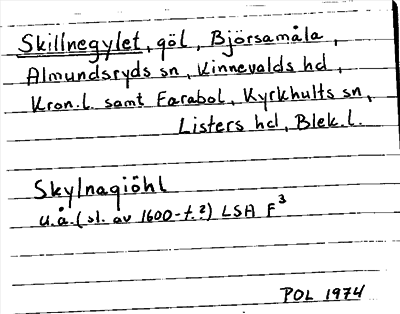 Skillnegylet, göl, Björsamåla,
Almundsryds sn, Kinnevalds hd,
Kron.l. samt Farabol, Kyrkhults sn,
Listers hd, Blek.l.
Skylnagiöhl
u.å. (sl. av 1600-t.?) LSA F³
POL 1974